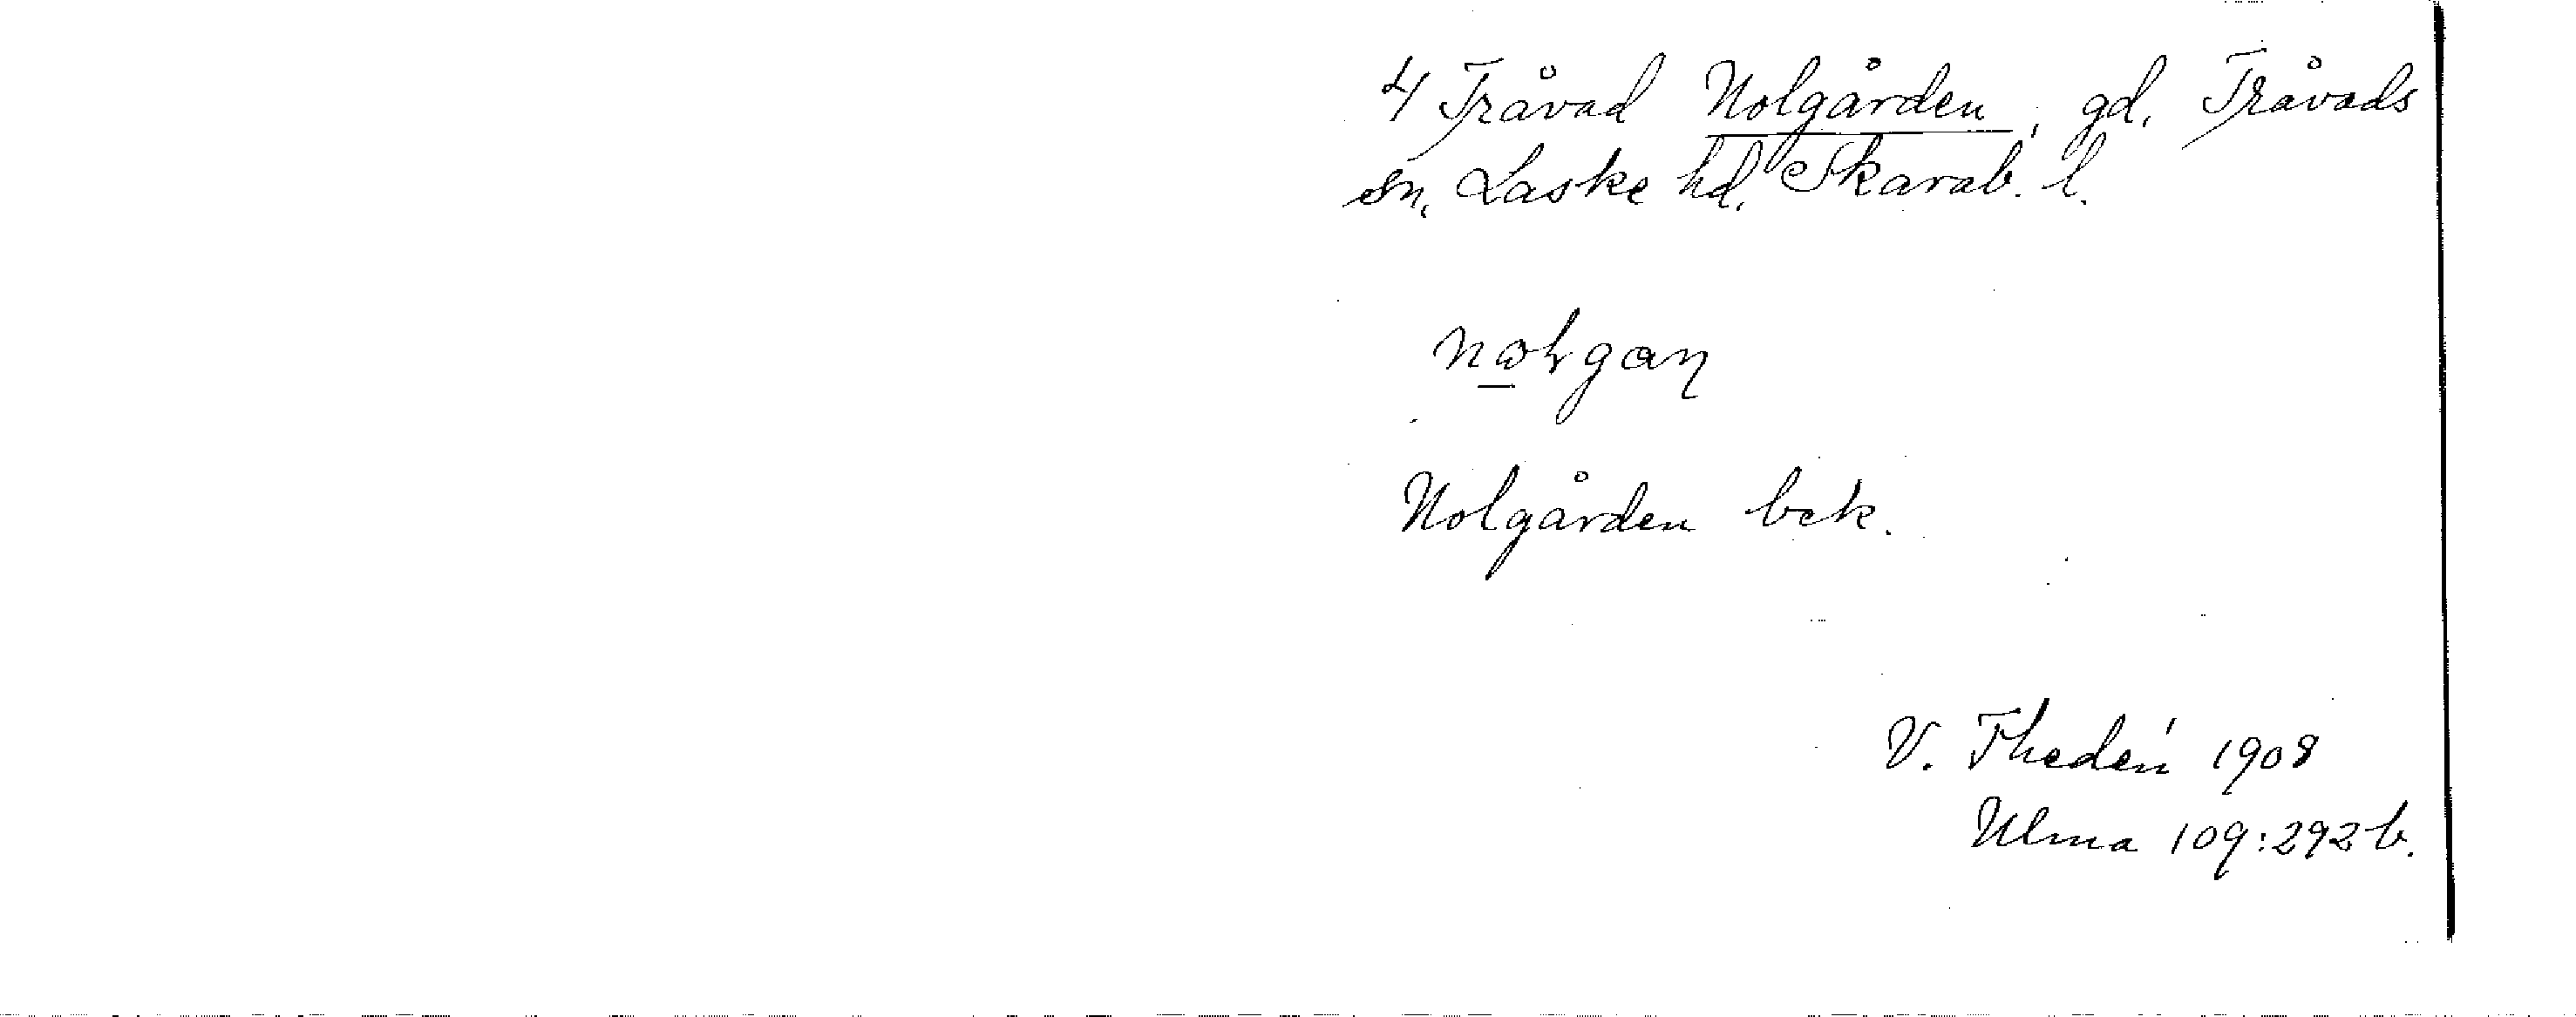 4 Tråvad Nolgården, gd, Tråvads
sn, Laske hd, Skarab. l.
Nolgården bek.
V. Thedén 1908
Ulma 109:292 b.